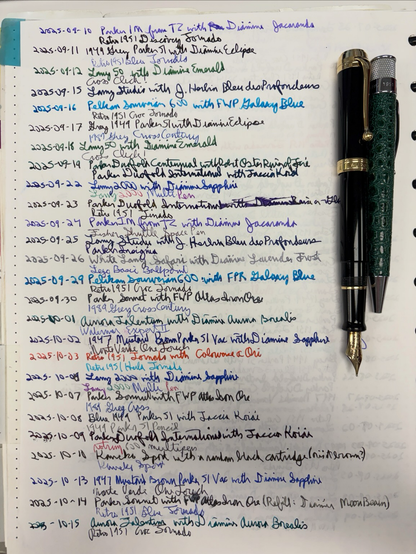 2025-09-10 Parker IM from TZ with Diamine Jacaranda
Retro 1951 Discovery Tornado
2025-09-11 1949 Grey Parker 51 with Diamine Eclipse
Retro 1951 Tornado
2025-09-12 Lamy 50 with Diamine Emerald
Cross Click
2025-09-15 Lamy Studio with J. Herbin Bleu des Profondeurs
2025-09-16 Pelikan Souverän 600 with FWP Galaxy Blue
Retro 1951 Croc Tornado
2025-09-17 Gray 1949 Parker 51 with Diamine Eclipse
1989 Grey Cross Century
2025-09-18 Lamy 50 with Diamine Emerald
Cross Click
2025-09-19 Parker Duofold Centennial with
Parker Duofold International with
2025-09-22 Lamy 2000 with Diamine Sapphire
Lamy 2000 Multi Pen
2025-09-23 Parker Duofold International
Retro 1951
2025-09-24 Parker IM from TZ with Diamine Jacaranda
Fisher Shuttle Space Pen
2025-09-25 Lamy Studio with J. Herbin Bleu des Profondeurs
2025-09-26 White Lamy Safari with Diamine Lavender Frost
Lego Basic Ballpoint
2025-09-29 Pelikan Souverän 600 with FPR Galaxy Blue
Retro 1951 Croc Tornado
2025-09-30 Parker Sonnet with FWP Atlas Iron Ore
1989 Grey Cross Century
2025-10-01 Aurora Talentum with Diamine Aurora Borealis
2025-10-02 1947 Mustard Brown Parker 51 Vac with Diamine Sapphire
Monteverde One Touch
2025-10-03 Retro 1951 Tornado with Colorverse α Ori
Retro 1951 Tornado
2025-10-06 Lamy 2000 with Diamine Sapphire
Lamy 2000 Multi Pen
2025-10-07 Parker Sonnet with FWP Atlas Iron Ore
1989 Grey Cross
2025-10-08 Blue 1949 Parker 51 with Jacques
1949 Parker 51 Pencil
2025-10-09 Parker Duofold International with
Rotring 600
2025-10-10 Kaweco Sport with a random black cartridge
Kaweco Sport
2025-10-13 1947 Mustard Brown Parker 51 Vac with Diamine Sapphire
Monteverde One Touch
2025-10-14 Parker Sonnet with FWP Atlas Iron Ore (Refill: Diamine
Retro 1951 Blue Tornado
2025-10-15 Aurora Talentum with Diamine Aurora Borealis
Retro 1951 Croc Tornado